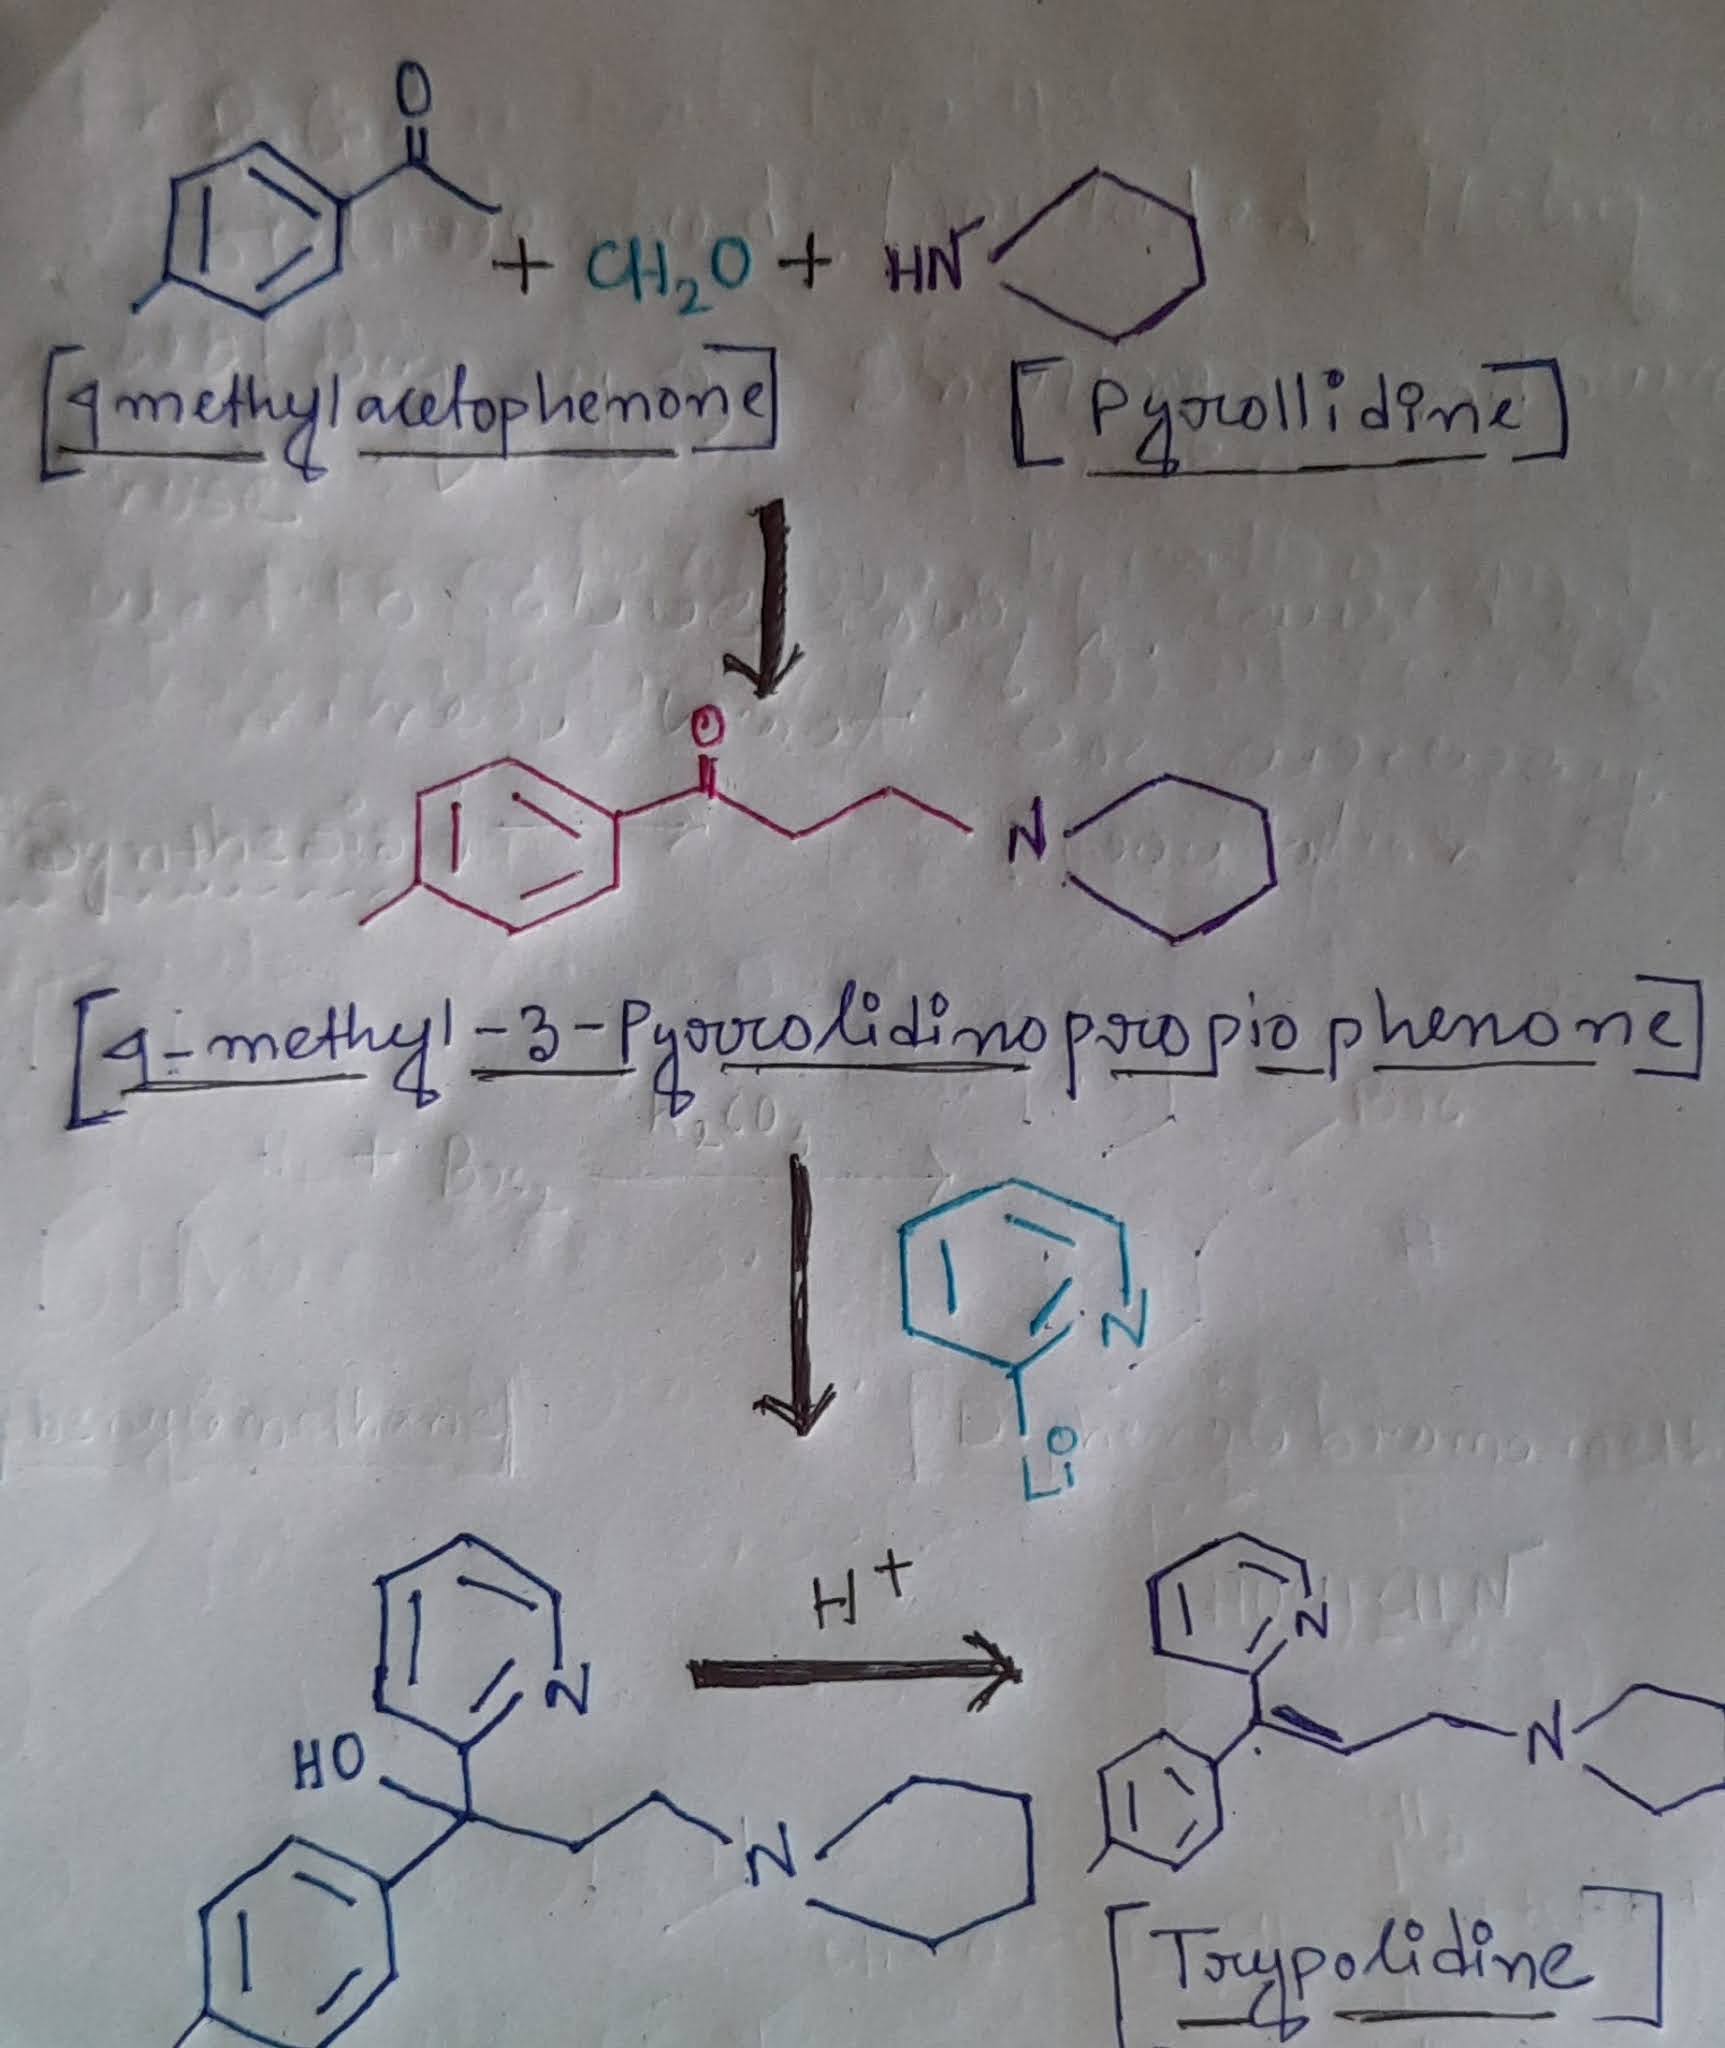 O
+ CH₂O + HN
[4 methyl acetophenone] [Pyrollidine]
O
N
[4-methyl-3-Pyrrolidinopropiophenone]
N
Li
N H+ N
HO
N
N
[Trypolidine]